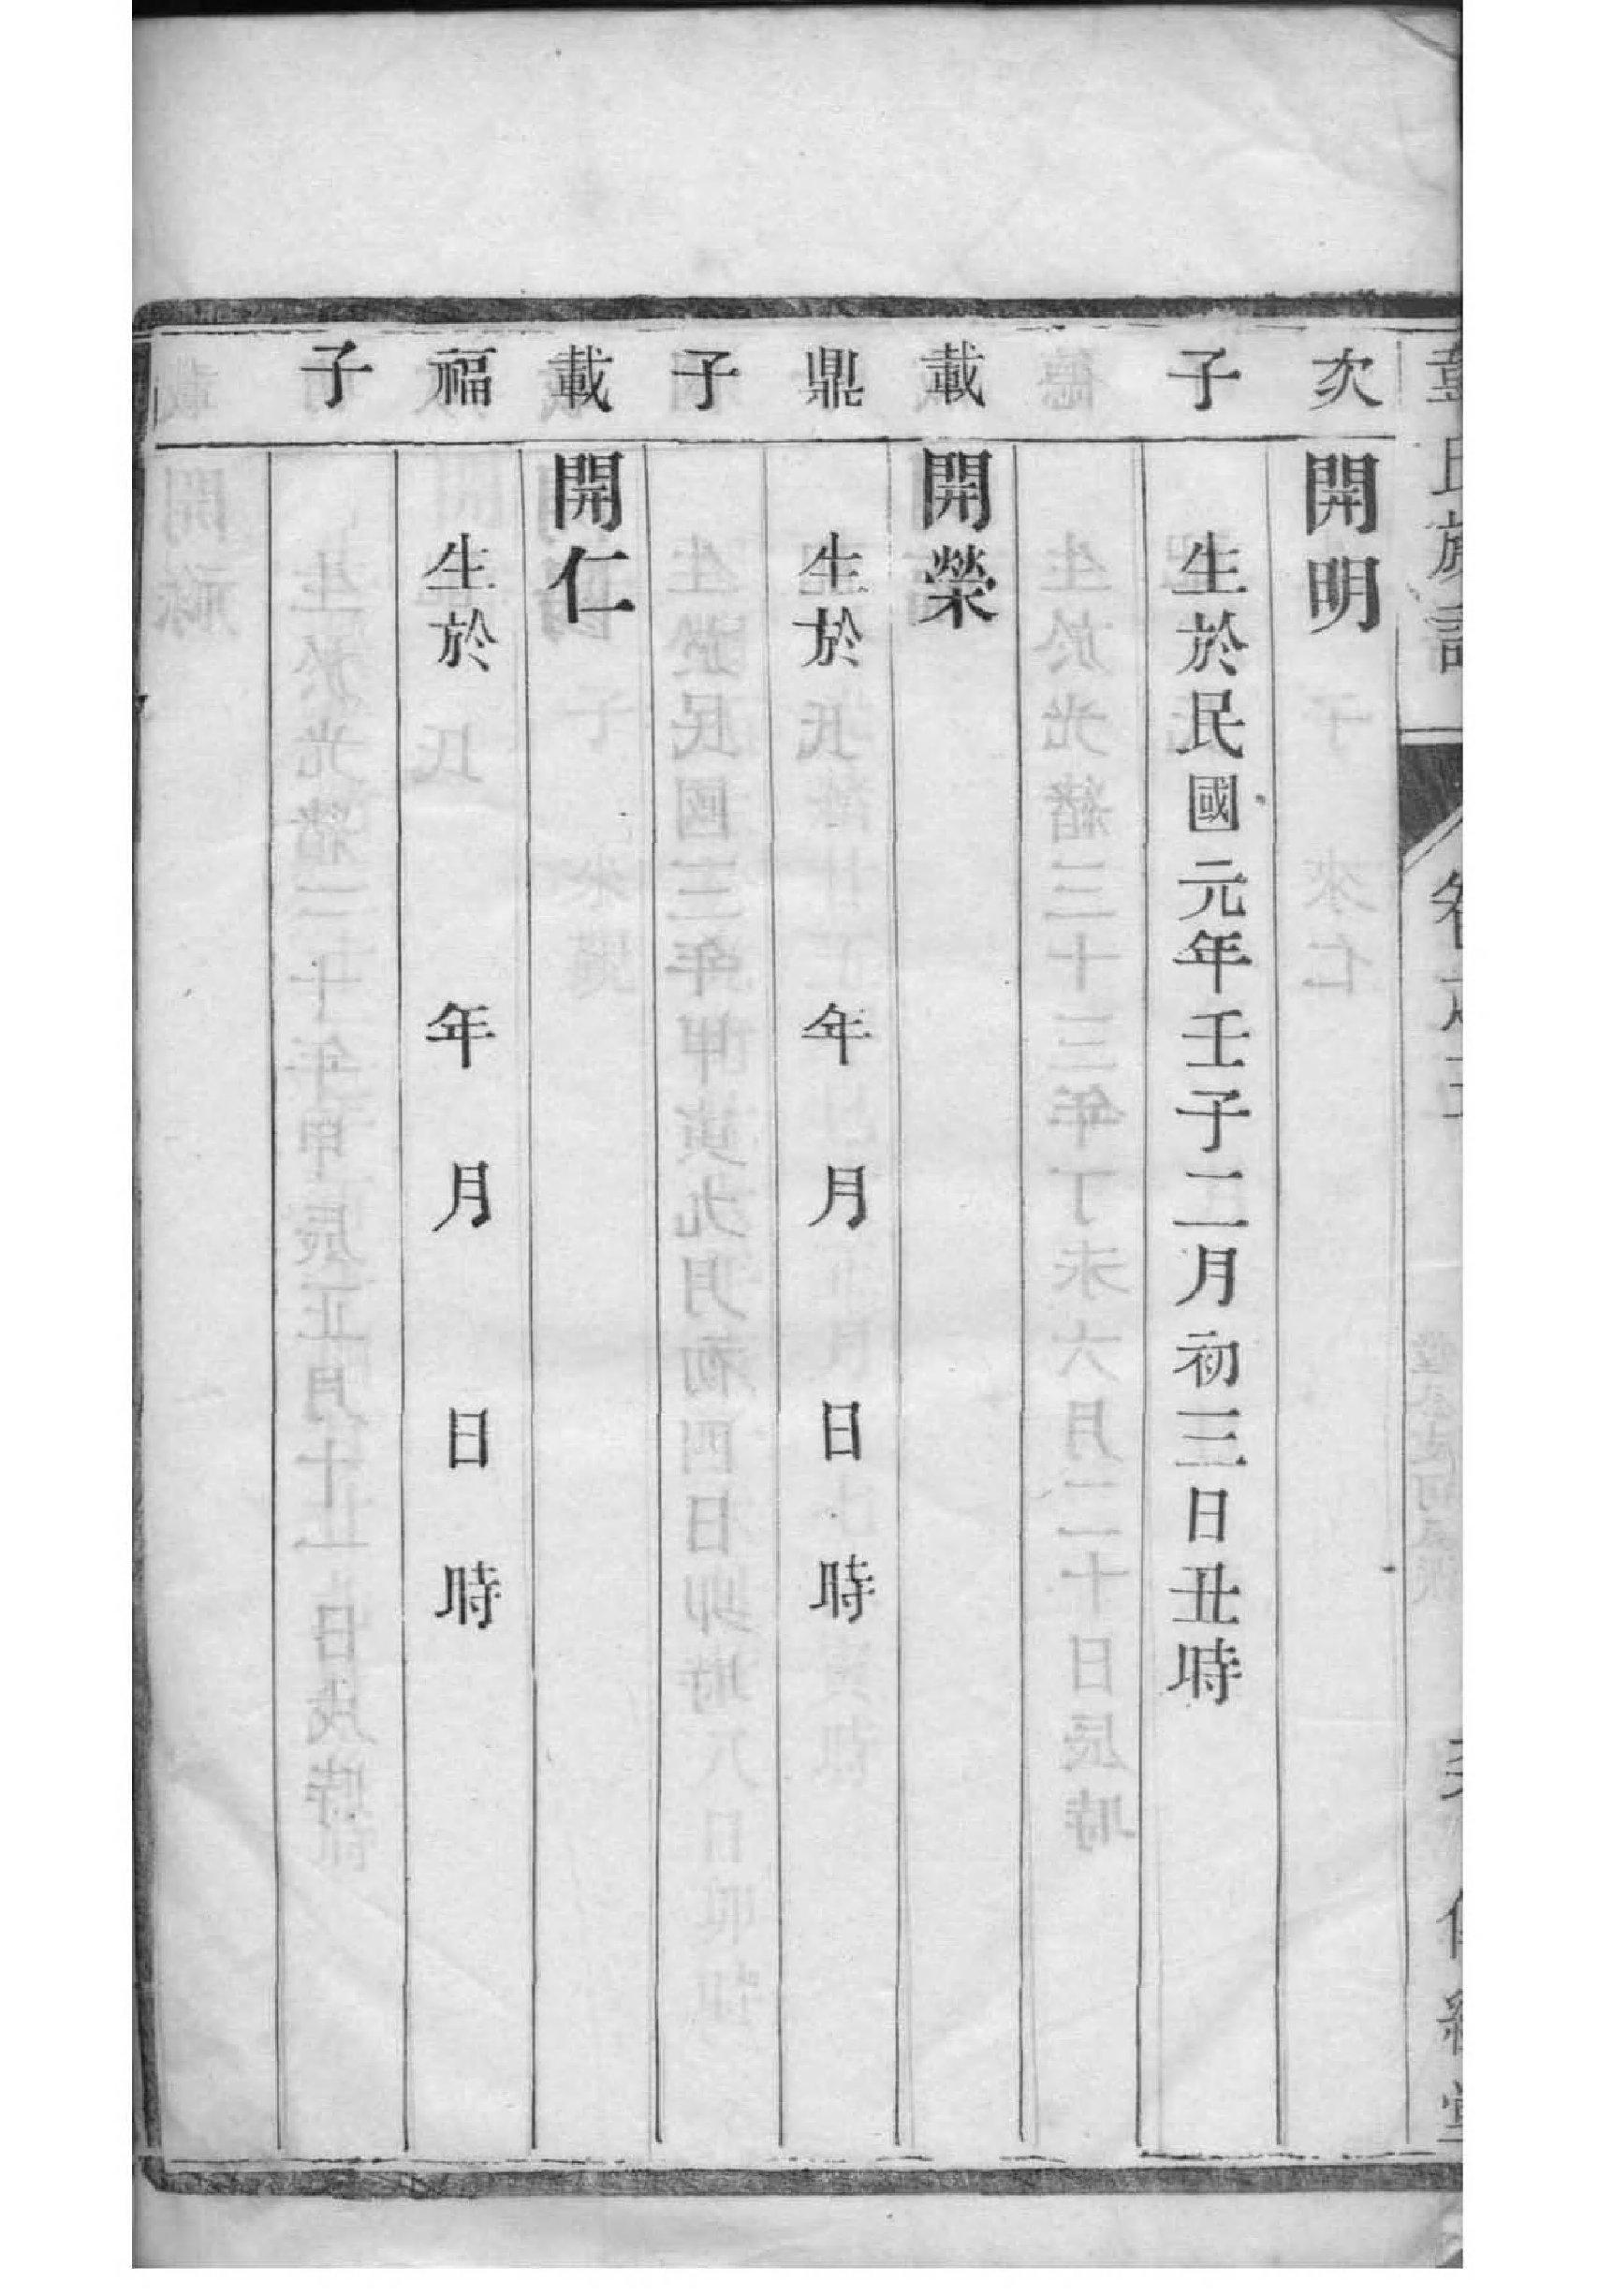 氏族譜
次 開明
子 生於民國元年壬子二月初三日丑時
載 開榮
鼎 生於 年 月 日 時
子
載 開仁
福 生於 年 月 日 時
子